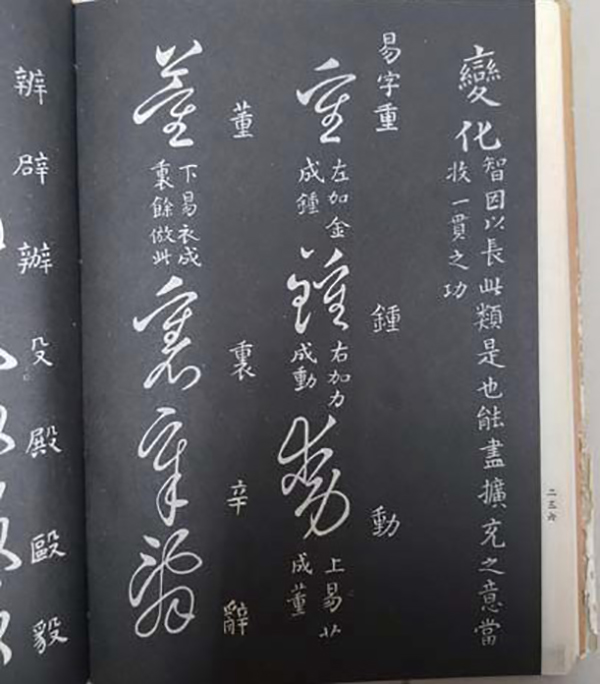 變化
智因以長此類是也能盡擴充之意當
收一貫之功
二三六
易字重
鍾
動
重
左加金
成鍾
鍾
右加力
成動
動
上易艹
成董
董
裏
辛
辭
董
下易衣成
裏餘倣此
裏
辛
辭
辨
辟
辦
殳
殿
毆
毅